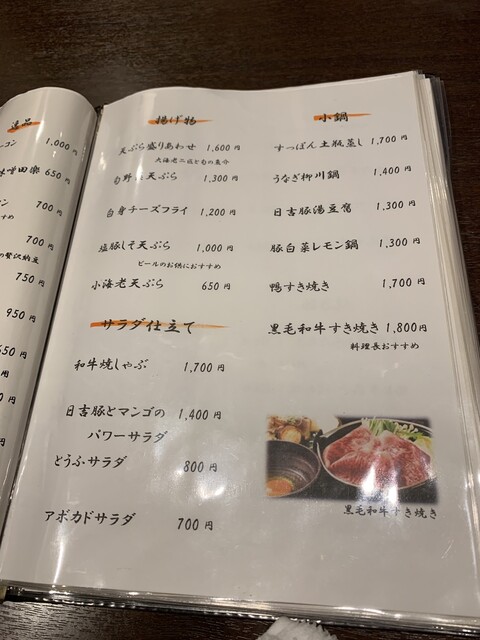 逸品
1,000 円
味噌田樂 650 円
700 円
700 円
の贅沢納豆
750 円
950 円
650 円
円
0 円
円
揚げ物
天ぷら盛りあわせ 1,600 円
大海老二塩と旬の魚介
旬野菜天ぷら 1,300 円
白身チーズフライ 1,200 円
塩豚しそ天ぷら 1,000 円
ビールのお供におすすめ
小海老天ぷら 650 円
サラダ仕立て
和牛焼しゃぶ 1,700 円
日吉豚とマンゴの 1,400 円
パワーサラダ
とうふサラダ 800 円
アボカドサラダ 700 円
小鍋
すっぽん土瓶蒸し 1,700 円
うなぎ柳川鍋 1,400 円
日吉豚湯豆腐 1,300 円
豚白菜レモン鍋 1,300 円
鴨すき焼き 1,700 円
黒毛和牛すき焼き 1,800円
料理長おすすめ
黒毛和牛すき焼き